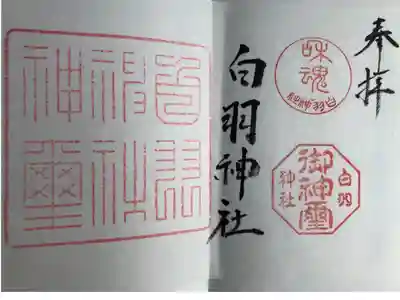 奉拝
魂
白羽神社
御神璽
白羽
神社
白羽神社
白羽
神社
神璽